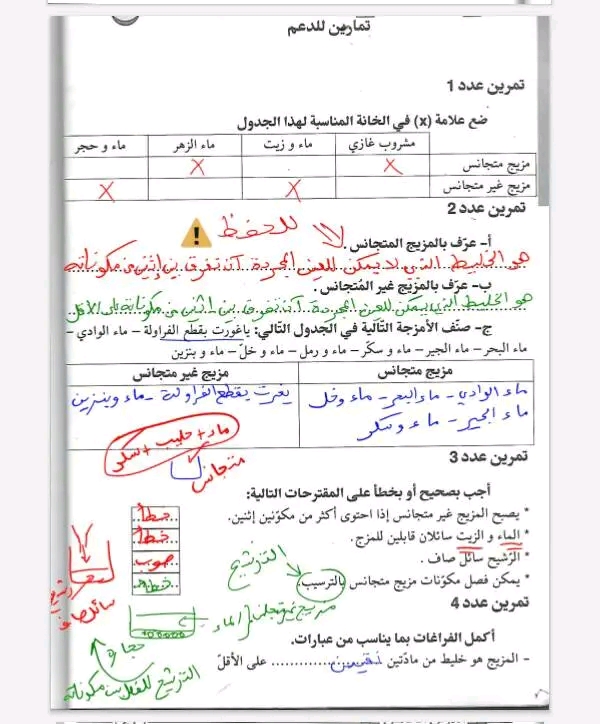 تمارين للدعم
تمرين عدد 1
ضع علامة (x) في الخانة المناسبة لهذا الجدول
مشروب غازي ماء و زيت ماء الزهر ماء و حجر
مزيج متجانس X X
مزيج غير متجانس X X
تمرين عدد 2
للحفظ
أ- عرّف بالمزيج المتجانس.
هو الخليط التي لا يمكن للعين المجردة أن تفرق بين إثنين من مكوناته
ب- عرّف بالمزيج غير المُتجانس.
هو الخليط التي يمكن للعين المجردة أن تفرق بين اثنين من مكوناته على الأقل
ج- صنّف الأمزجة التّالية في الجدول التّالي: ياغورت بقطع الفراولة – ماء الوادي –
ماء البحر – ماء الجير – ماء و سكّر – ماء و رمل – ماء و خلّ – ماء و بنزين
مزيج متجانس مزيج غير متجانس
ماء الوادي - ماء البحر - ماء وخل
ماء الجير - ماء وسكر
يغرت بقطع الفراولة - ماء وبنزين
ماء + حليب + سكر
متجانس
تمرين عدد 3
أجب بصحيح أو بخطأ على المقترحات التالية:
* يصبح المزيج غير متجانس إذا احتوى أكثر من مكوّنين إثنين. خطأ
* الماء و الزيت سائلان قابلين للمزج. خطأ
* الرّشيح سائل صاف. صوب
* يمكن فصل مكوّنات مزيج متجانس بالترسيب خطأ
الترشيح
سائل صاف
تمرين عدد 4
الماء
حجارة
أكمل الفراغات بما يناسب من عبارات.
- المزيج هو خليط من مادّتين نقيتين على الأقلّ
الترشيح